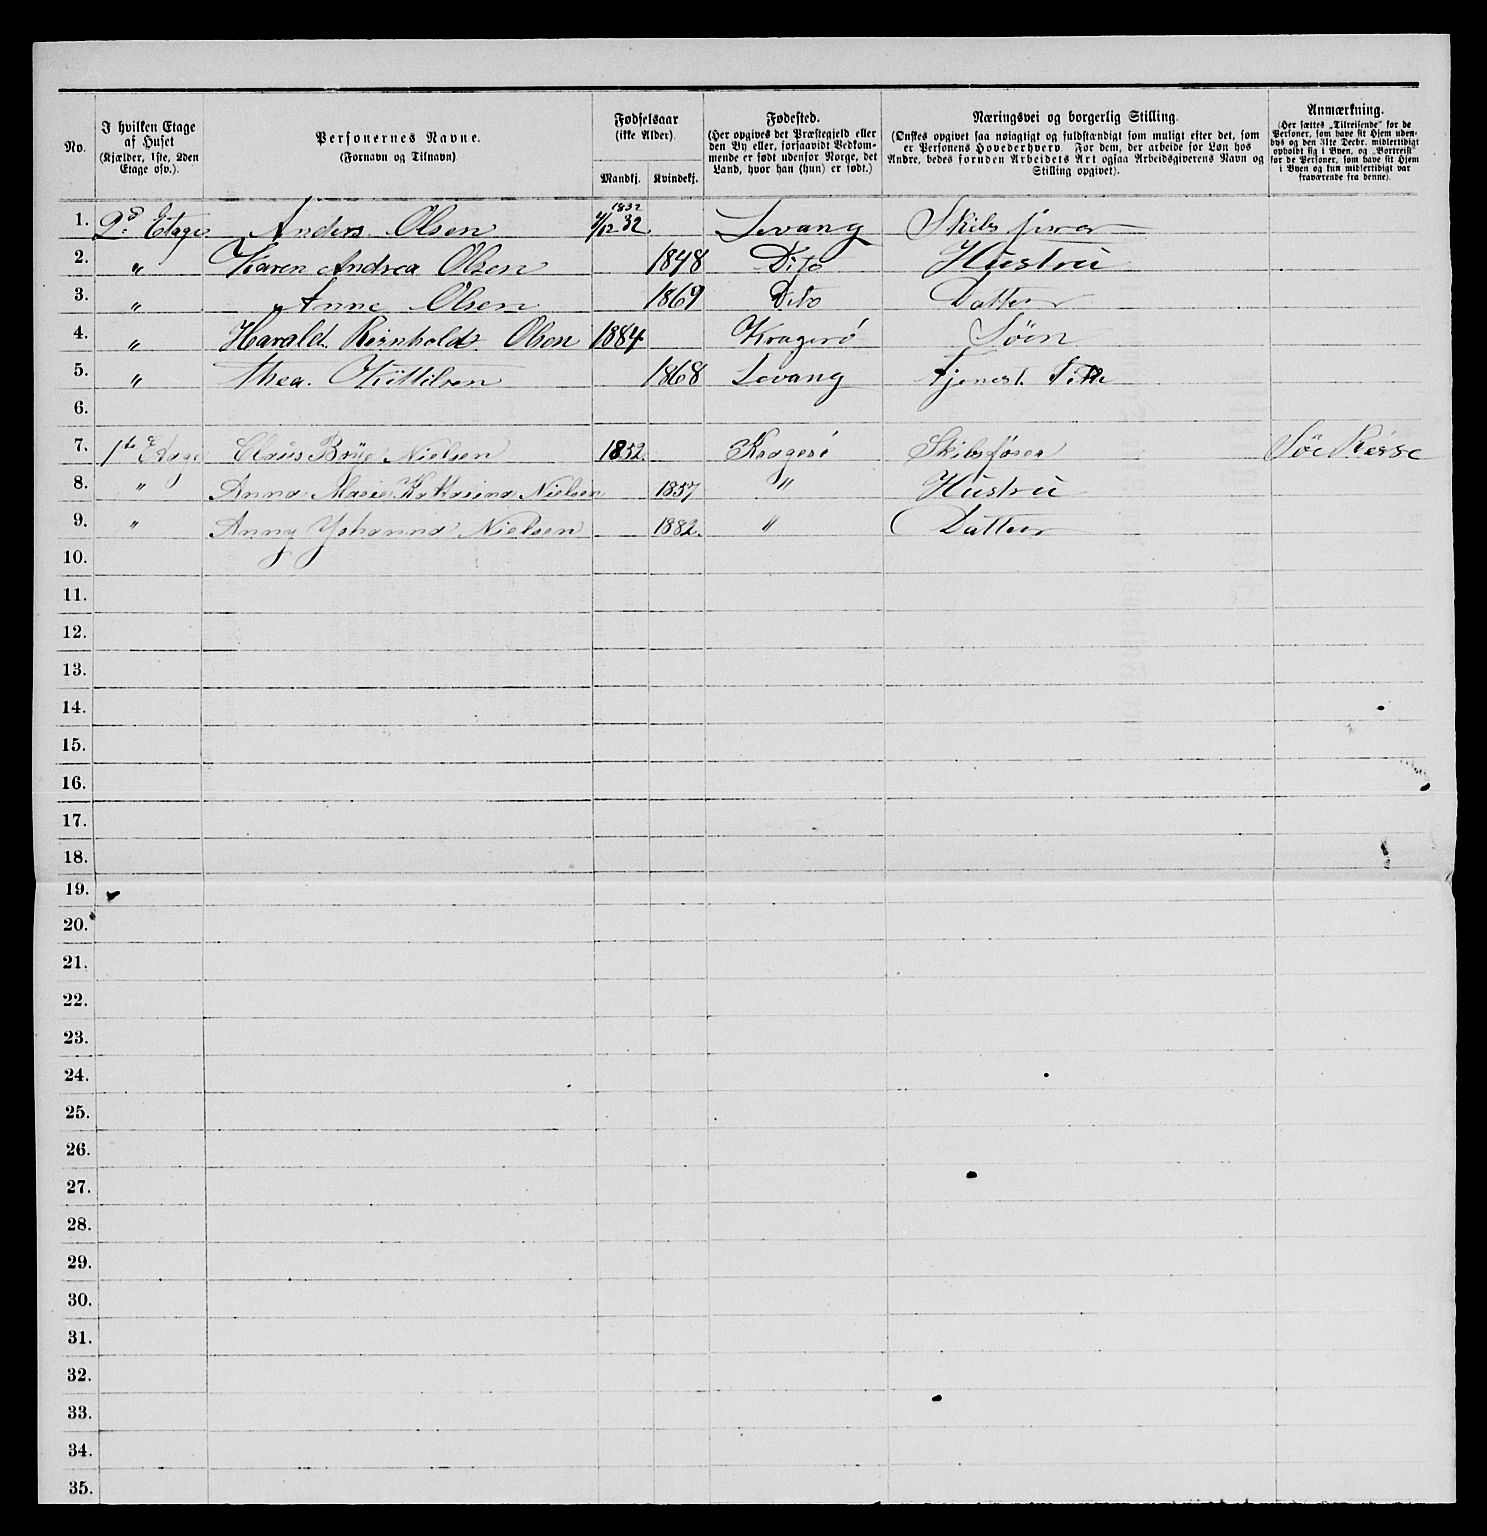 No.
I hvilken Etage
af Huset
(Kjælder, 1ste, 2den
Etage osv.).
Personernes Navne.
(Fornavn og Tilnavn)
Fødselsaar
(ikke Alder).
Mandkj. Kvindekj.
Fødested.
(Her opgives det Præstegjeld eller
den By eller, forsaavidt Vedkom-
mende er født udenfor Norge, det
Land, hvor han (hun) er født.)
Næringsvei og borgerlig Stilling.
(Ønskes opgivet saa nøiagtigt og fuldstændigt som muligt efter det, som
er Personens Hovederhverv. For dem, der arbeide for Løn hos
Andre, bedes foruden Arbeidets Art ogsaa Arbeidsgiverens Navn og
Stilling opgivet).
Anmærkning.
(Her sættes „Tilreisende" for de
Personer, som have sit Hjem uden-
bys og den 31te Decbr. midlertidigt
opholdt sig i Byen, og „Bortreist"
for de Personer, som have sit Hjem
i Byen og kun midlertidigt var
fraværende fra denne).
1832
1. 2d Etage Anders Olsen 4/12 32 Levang
2. " Karen Andrea Olsen 1848 Dito Hustru
3. " Anne Olsen 1869 Dito Datter
4. " Harald Reinholdt Olsen 1884 Kragerö Sön
5. " Thea Kittilsen 1868 Levang Tjenest
6.
7. 1ste Etage Claus Brüe Nielsen 1852. Kragerö Skibsförer Söe Reise
8. " Anna Marie Katarina Nielsen 1857 " Hustru
9. " Anny Johanna Nielsen 1882. " Datter
10.
11.
12.
13.
14.
15.
16.
17.
18.
19.
20.
21.
22.
23.
24.
25.
26.
27.
28.
29.
30.
31.
32.
33.
34.
35.